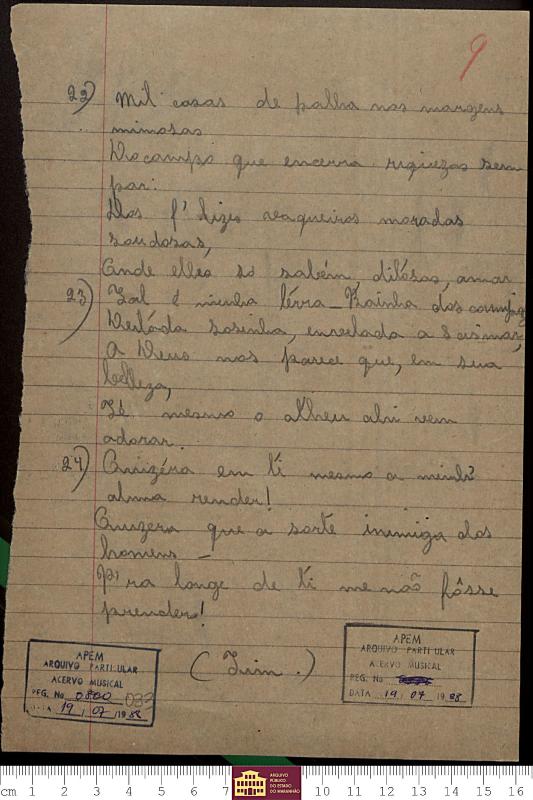 9
22) Mil casas de palha nas margens
mimosas
Do campo que encerra riquezas sem
par:
Dos f'lizes vaqueiros moradas
saudosas,
Onde elles só sabem ditósos, amar
23) Tal é minha térra _ Rainha dos campos
Deitáda sosinha, enrelada a scismar,
A Deus nos parece que, em sua
belleza,
Té mesmo o atheu alni vem
adorar.
24) Quizéra em ti mesmo a minh'
alma render!
Quizera que a sorte inimiga dos
homens _
P'ra longe de ti me não fôsse
prender!
(Fim.)
APEM
ARQUIVO PARTICULAR
ACERVO MUSICAL
REG. No 0800 033
DATA 19 / 07 / 1988
APEM
ARQUIVO PARTICULAR
ACERVO MUSICAL
REG. No
DATA 19 / 07 / 1988
cm 1 2 3 4 5 6 7 10 11 12 13 14 15 16
ARQUIVO
PÚBLICO
DO ESTADO
DO MARANHÃO